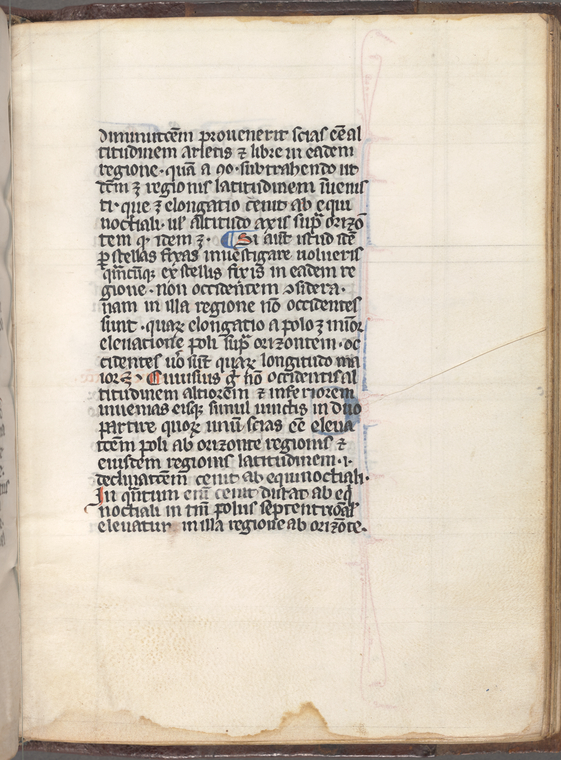 diminuitēm prouenerit scias eēal
titudinem arietis ⁊ libre in eadem
regione · quā a 90 · subtrahendo ut
tem ʒ regionis latitudinem īuenis
ti · que ʒ elongatio cenit ab equi
noctiali · ul' altitudo axis sup̄ orizō
tem q idem ʒ · Si aūt istud idē
ꝑ stellas fixas inuestigare uolueris
ex stellis fixis in eadem re
gione · non occidentem ↄsidera ·
nam in illa regione nō occidentes
sunt · quare elongatio a polo ʒ minor
eleuatione poli sup̄ orizontem · oc
cidentes uō sūt quare longitudo ma
ior ʒ · Cuiusuis g̊ nō occidentis al
titudinem altiorem ⁊ inferiorem
inuenias eisqꝫ simul iunctis in duo
partire quoꝝ unū scias eē eleua
tōem poli ab orizonte regionis ⁊
eiusdem regionis latitudinem · i ·
declinatōem cenit ab equinoctiali ·
In q̄ntum enī cenit distat ab eq̄
noctiali in tm̄ polus septentrōal'
eleuatur in illa regione ab orizōte ·